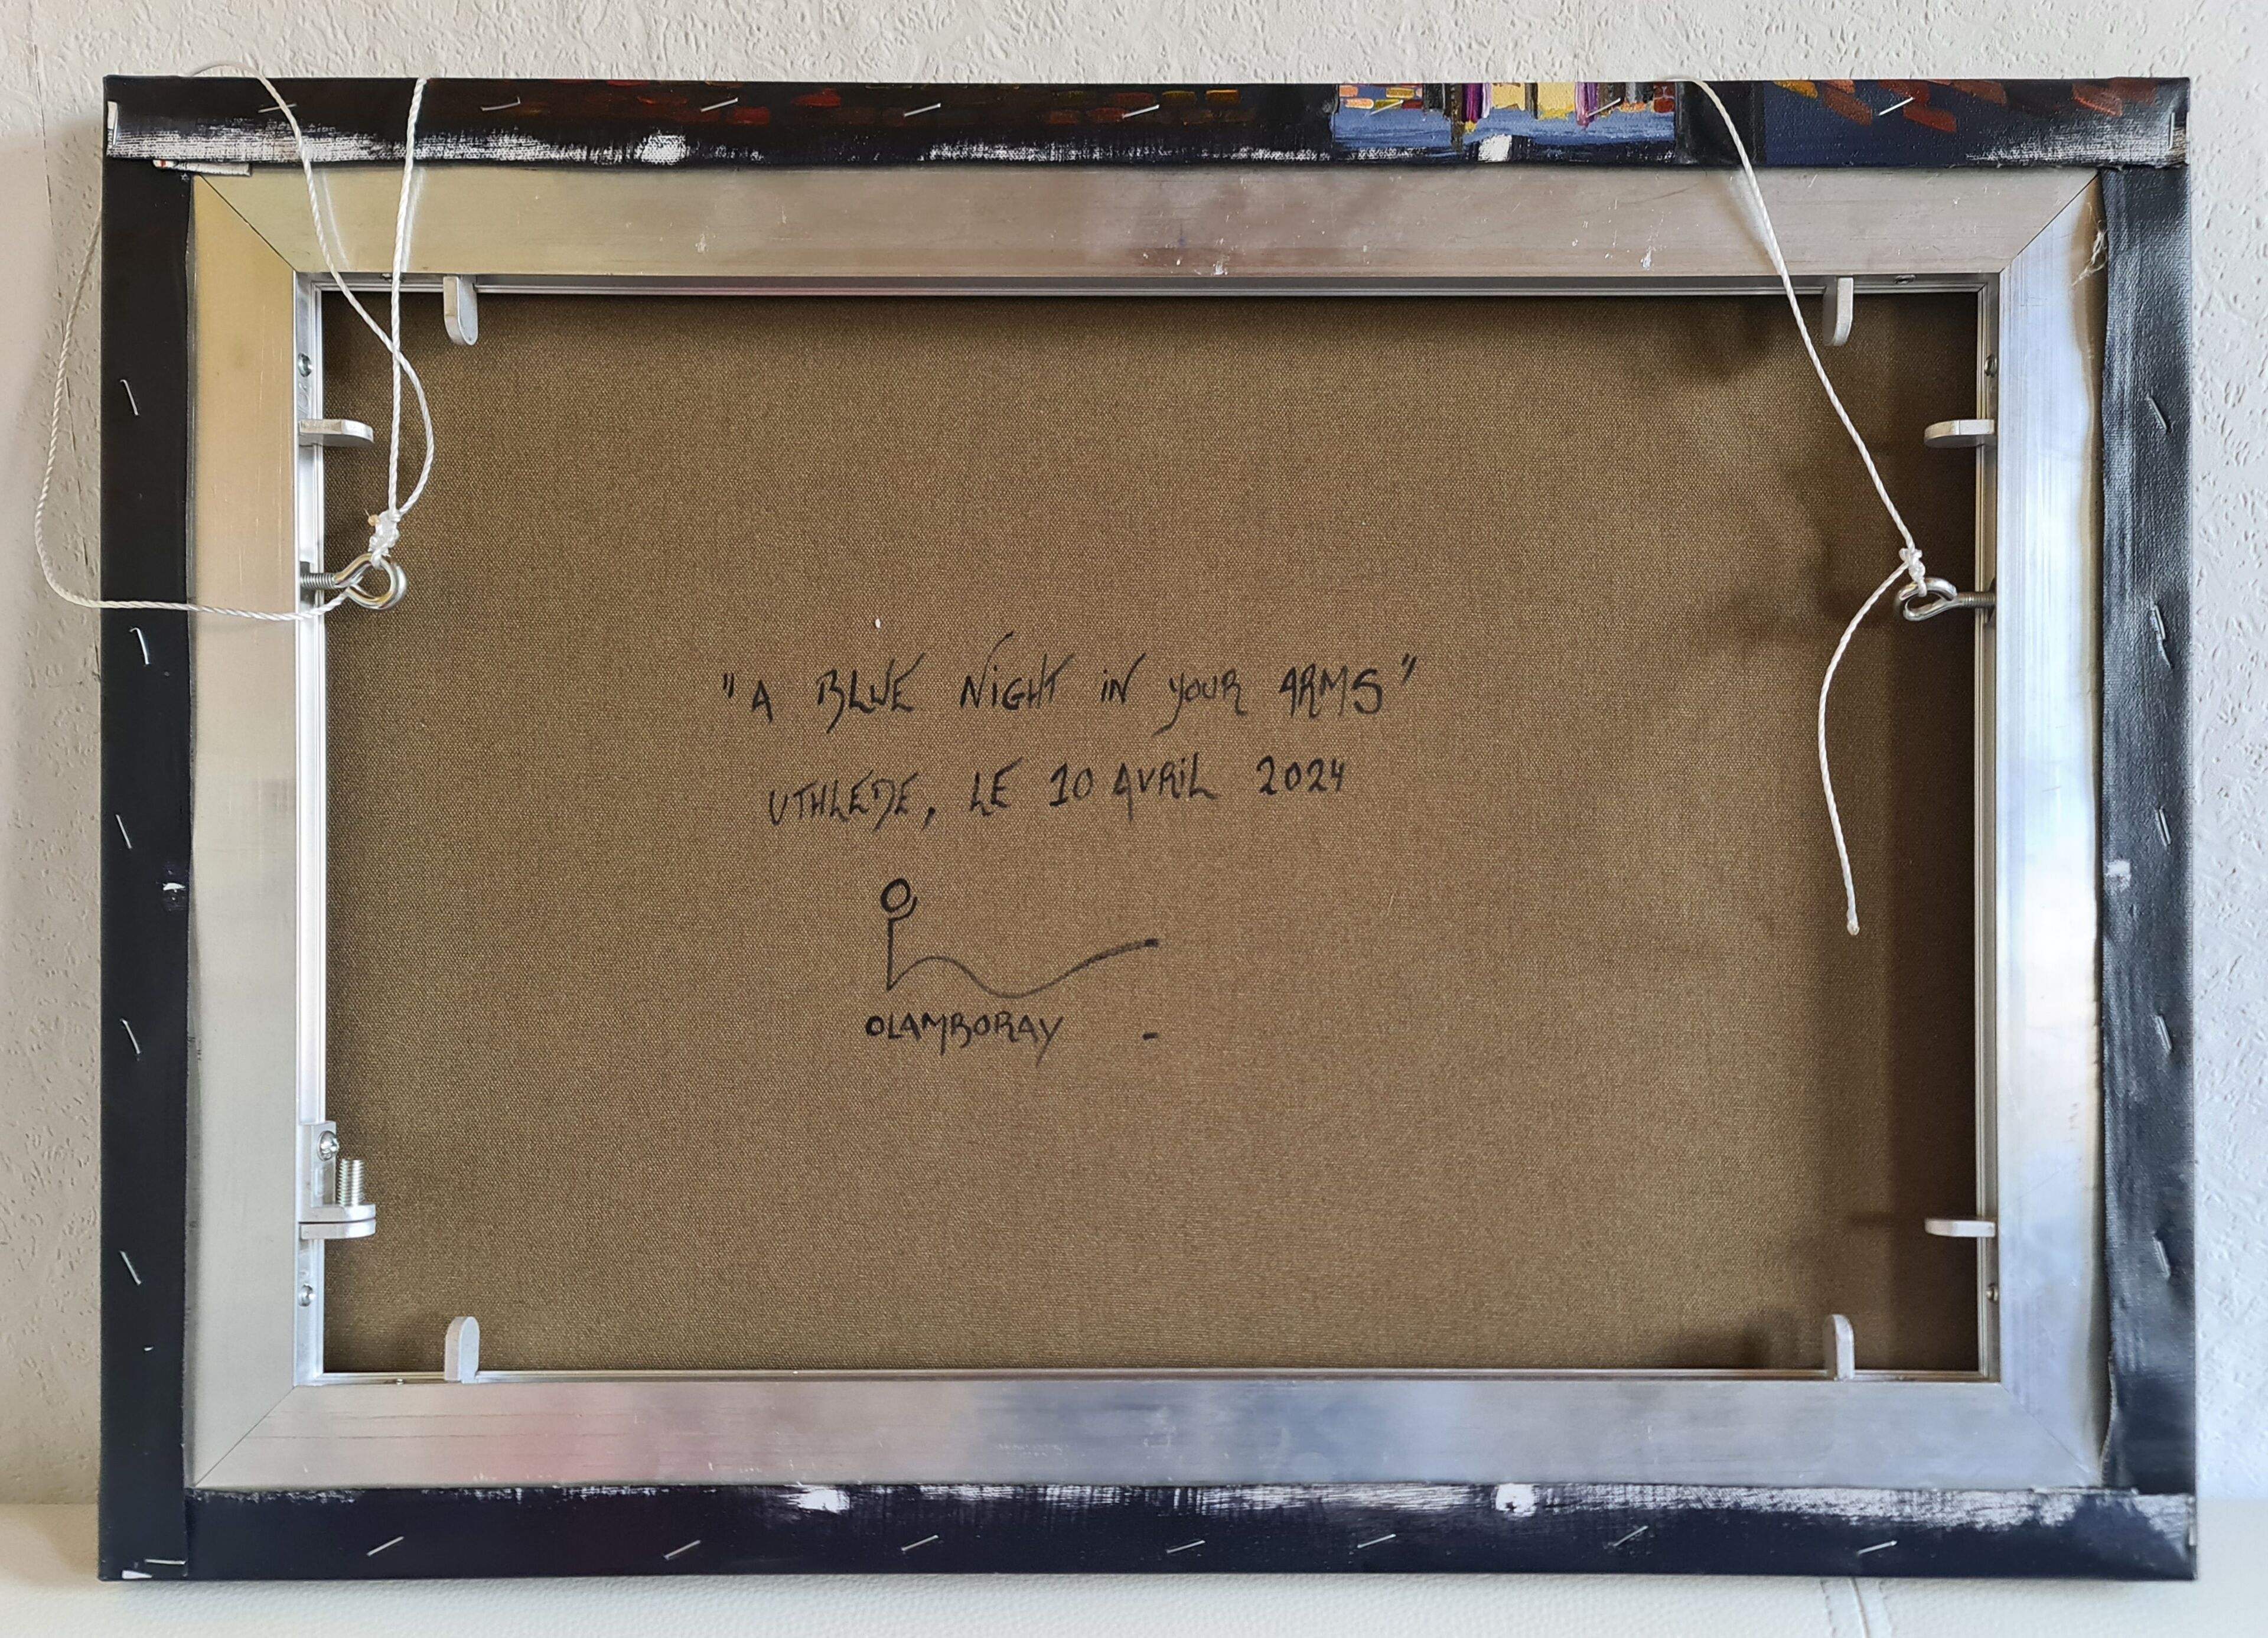 "A BLUE NiGHT iN YOUR ARMS"
UTHLEDE, LE 10 AVRiL 2024
OLAMBORAY